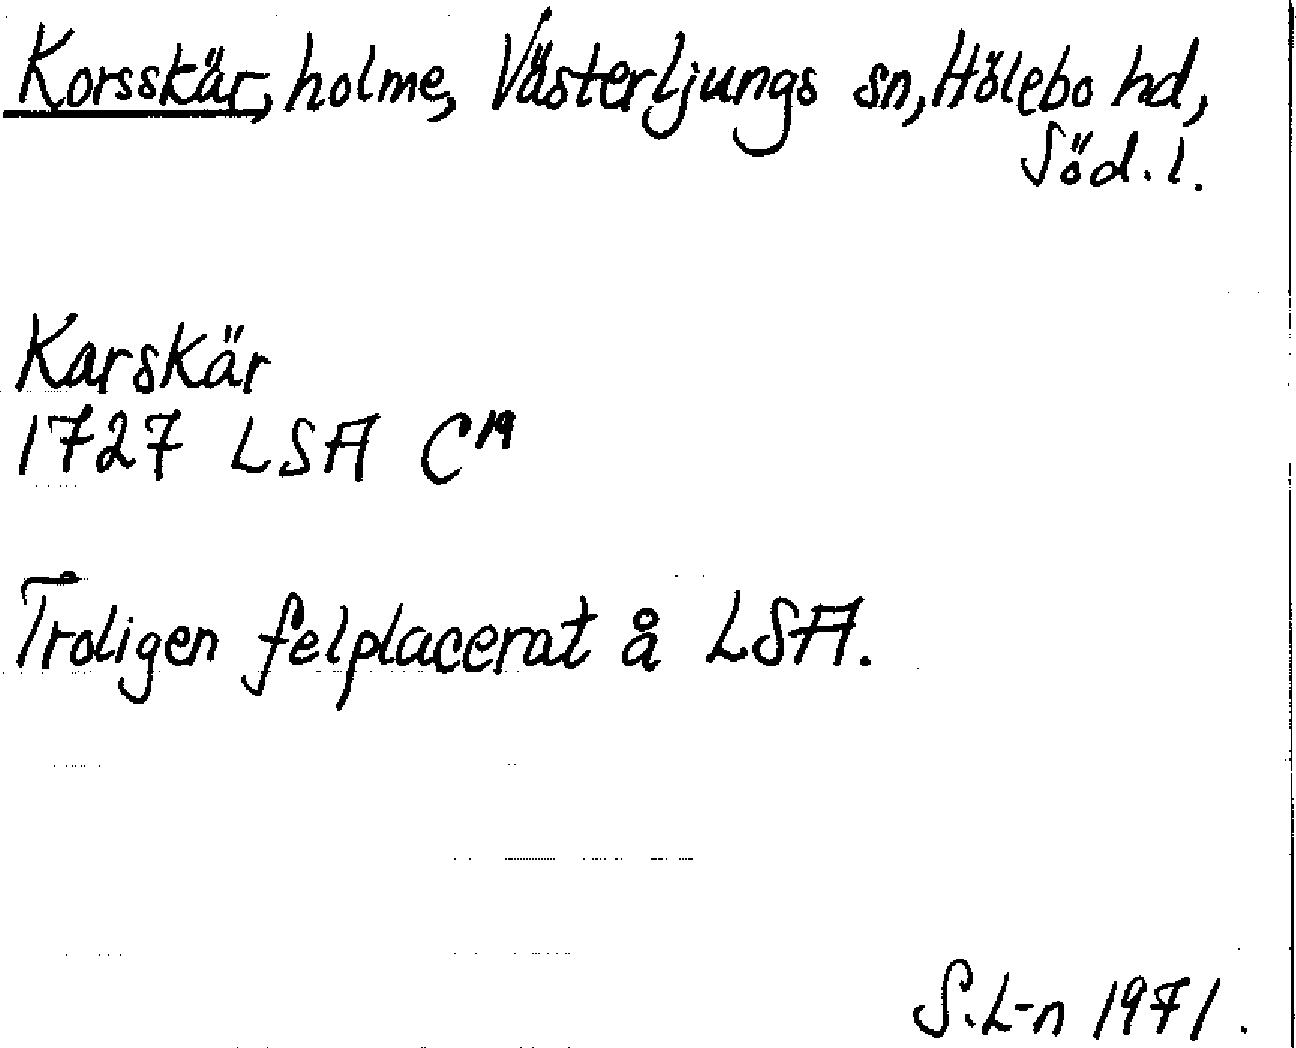 Korsskär, holme, Västerljungs sn, Hölebo hd,
Söd. l.
Karskär
1727 LSA C¹⁹
Troligen felplacerat å LSA.
S.L-n 1971.